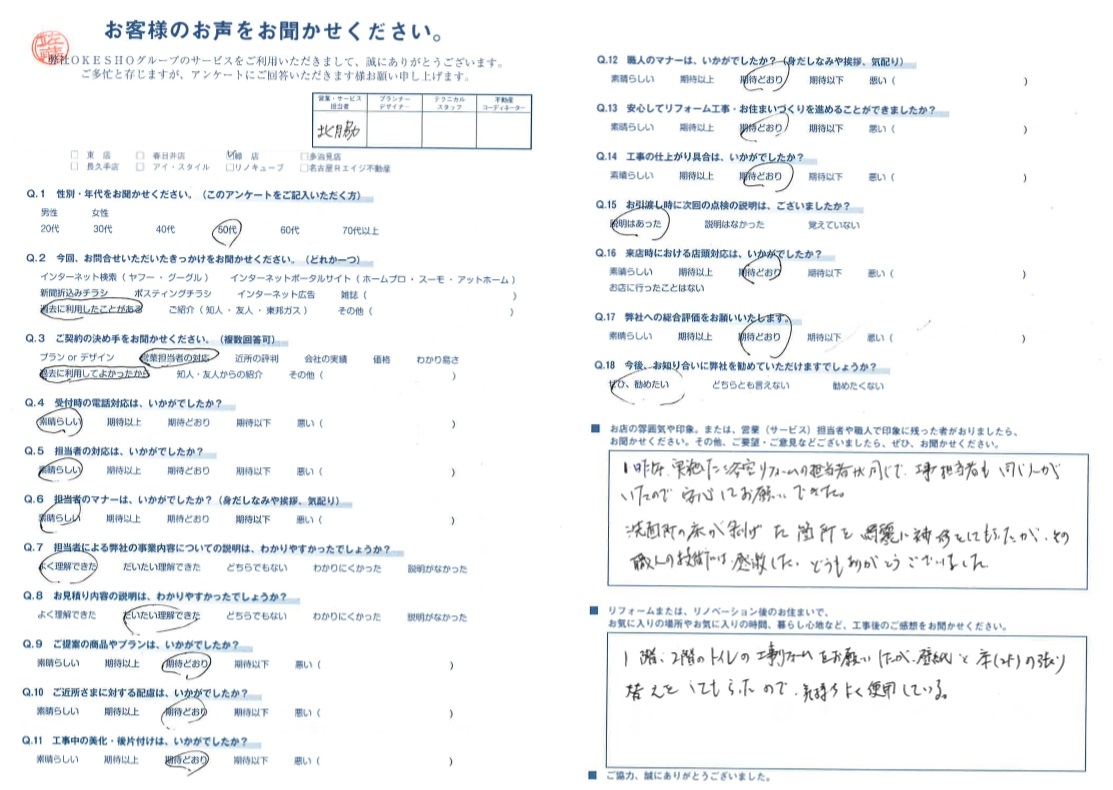 お客様のお声をお聞かせください。
佐藤
弊社OKESHOグループのサービスをご利用いただきまして、誠にありがとうございます。
ご多忙と存じますが、アンケートにご回答いただきます様お願い申し上げます。
営業・サービス担当者 プランナーデザイナー テクニカルスタッフ 不動産コーディネーター
北脇
□ 東 店 □ 春日井店 ☑緑 店 □多治見店
□ 長久手店 □ アイ・スタイル □リノキューブ □名古屋Rエイジ不動産
Q.1 性別・年代をお聞かせください。(このアンケートをご記入いただく方)
男性 女性
20代 30代 40代 50代 60代 70代以上
Q.2 今回、お問合せいただいたきっかけをお聞かせください。(どれか一つ)
インターネット検索(ヤフー・グーグル) インターネットポータルサイト(ホームプロ・スーモ・アットホーム)
新聞折込みチラシ ポスティングチラシ インターネット広告 雑誌( )
過去に利用したことがある ご紹介(知人・友人・東邦ガス) その他( )
Q.3 ご契約の決め手をお聞かせください。(複数回答可)
プラン or デザイン 営業担当者の対応 近所の評判 会社の実績 価格 わかり易さ
過去に利用してよかったから 知人・友人からの紹介 その他( )
Q.4 受付時の電話対応は、いかがでしたか?
素晴らしい 期待以上 期待どおり 期待以下 悪い( )
Q.5 担当者の対応は、いかがでしたか?
素晴らしい 期待以上 期待どおり 期待以下 悪い( )
Q.6 担当者のマナーは、いかがでしたか?(身だしなみや挨拶、気配り)
素晴らしい 期待以上 期待どおり 期待以下 悪い( )
Q.7 担当者による弊社の事業内容についての説明は、わかりやすかったでしょうか?
よく理解できた だいたい理解できた どちらでもない わかりにくかった 説明がなかった
Q.8 お見積り内容の説明は、わかりやすかったでしょうか?
よく理解できた だいたい理解できた どちらでもない わかりにくかった 説明がなかった
Q.9 ご提案の商品やプランは、いかがでしたか?
素晴らしい 期待以上 期待どおり 期待以下 悪い( )
Q.10 ご近所さまに対する配慮は、いかがでしたか?
素晴らしい 期待以上 期待どおり 期待以下 悪い( )
Q.11 工事中の美化・後片付けは、いかがでしたか?
素晴らしい 期待以上 期待どおり 期待以下 悪い( )
Q.12 職人のマナーは、いかがでしたか?(身だしなみや挨拶、気配り)
素晴らしい 期待以上 期待どおり 期待以下 悪い( )
Q.13 安心してリフォーム工事・お住まいづくりを進めることができましたか?
素晴らしい 期待以上 期待どおり 期待以下 悪い( )
Q.14 工事の仕上がり具合は、いかがでしたか?
素晴らしい 期待以上 期待どおり 期待以下 悪い( )
Q.15 お引渡し時に次回の点検の説明は、ございましたか?
説明はあった 説明はなかった 覚えていない
Q.16 来店時における店頭対応は、いかがでしたか?
素晴らしい 期待以上 期待どおり 期待以下 悪い( )
お店に行ったことはない
Q.17 弊社への総合評価をお願いいたします。
素晴らしい 期待以上 期待どおり 期待以下 悪い( )
Q.18 今後、お知り合いに弊社を勧めていただけますでしょうか?
ぜひ、勧めたい どちらとも言えない 勧めたくない
■ お店の雰囲気や印象。または、営業(サービス)担当者や職人で印象に残った者がおりましたら、
お聞かせください。その他、ご要望・ご意見などございましたら、ぜひ、お聞かせください。
昨年、実施した浴室リフォームの担当者が同じで、工事担当者も同じ人が
いたので安心してお願いできた。
洗面所の床が剥げた箇所を綺麗に補修してもらったが、その
職人の技術には感激した。どうもありがとうございました。
■ リフォームまたは、リノベーション後のお住まいで、
お気に入りの場所やお気に入りの時間、暮らし心地など、工事後のご感想をお聞かせください。
1階、2階のトイレの リフォームをお願いしたが、壁紙と床 の張り
替えをしてもらったので、気持ちよく使用している。
■ ご協力、誠にありがとうございました。